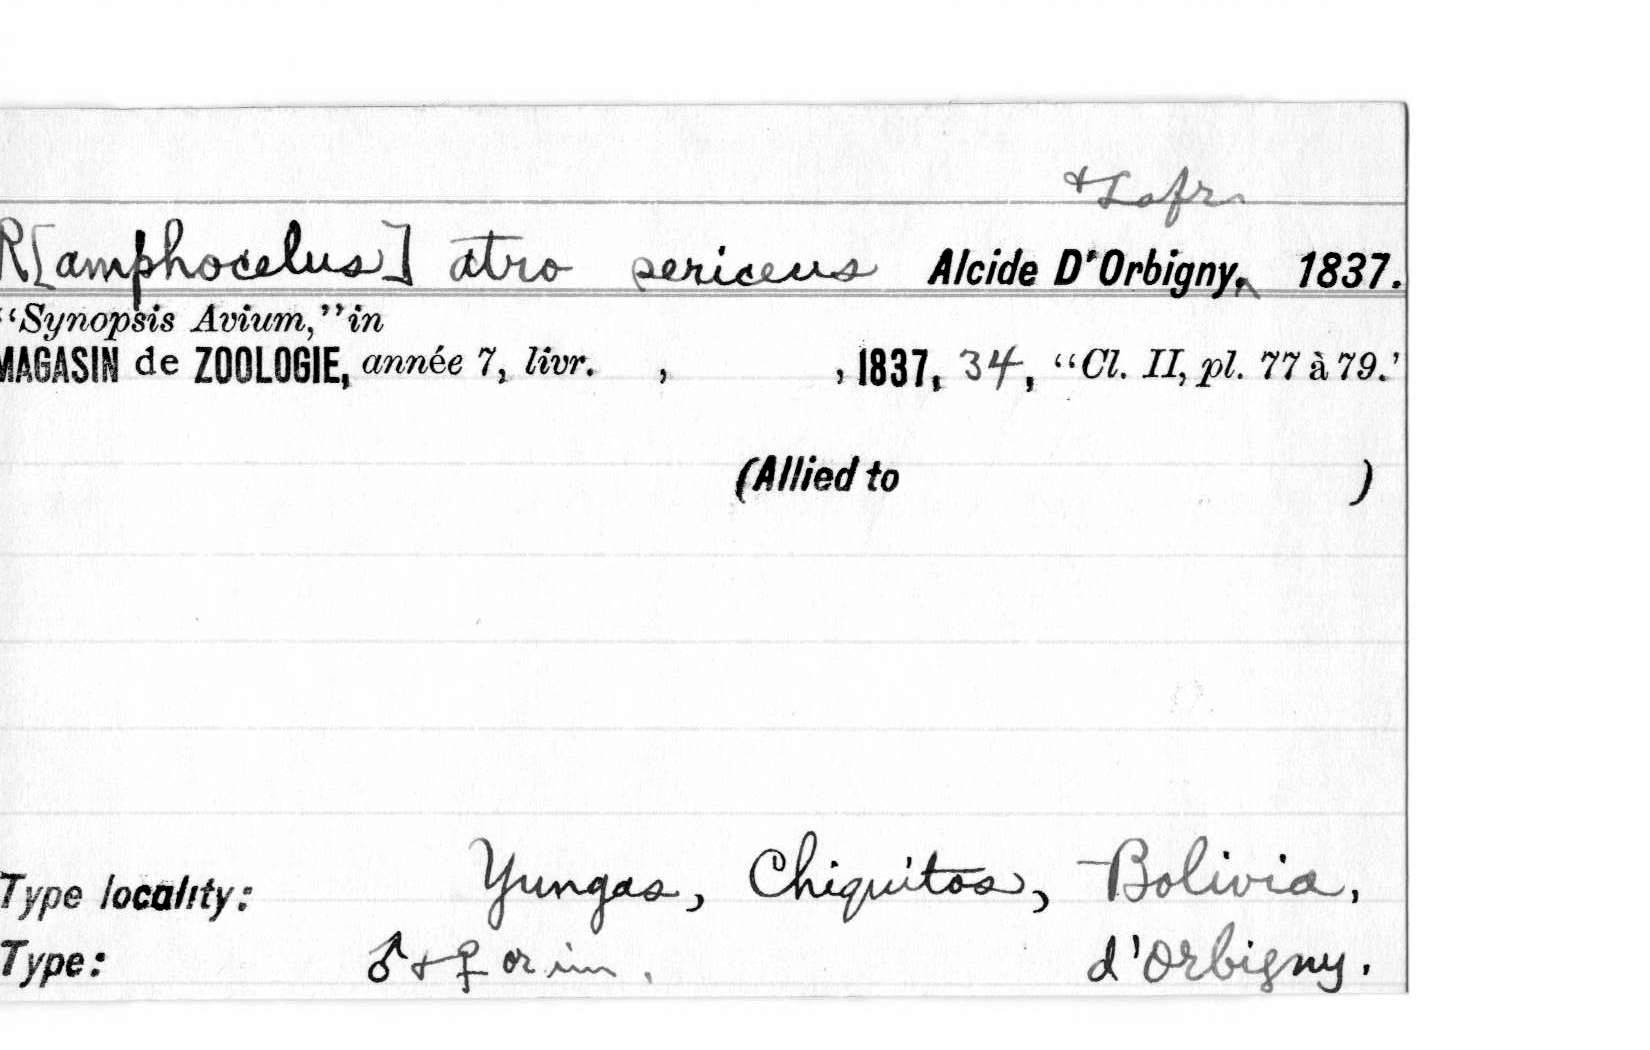 & Lafr
R[amphocelus] atro sericeus Alcide D'Orbigny, 1837.
"Synopsis Avium," in
MAGASIN de ZOOLOGIE, année 7, livr. , , 1837, 34, "Cl. II, pl. 77 à 79."
(Allied to )
Type locality: Yungas, Chiquitos, Bolivia,
Type: ♂ & ♀ or im. d'Orbigny.